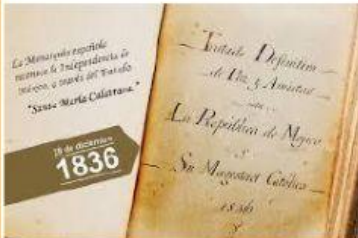 La Monarquía española
reconoce la Independencia de
México, a través del Tratado
"Santa María Calatrava."
28 de diciembre
1836
Tratado Definitivo
de Paz y Amistad
entre
La República de Mejico
y
Su Magestad Católica
1836